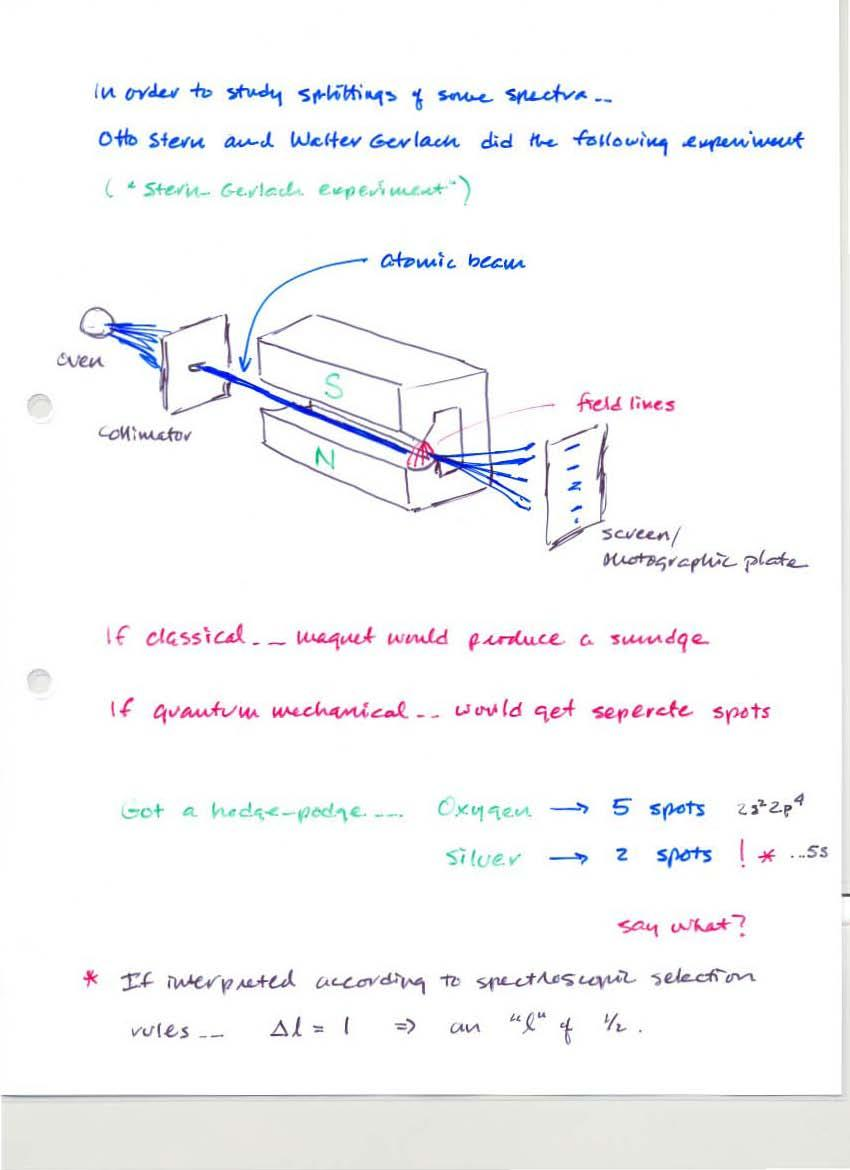 In order to study splittings of some spectra...
Otto Stern and Walter Gerlach did the following experiment
("Stern-Gerlach experiment")
atomic beam
oven
S
field lines
collimator
N
screen/
photographic plate
If classical... magnet would produce a smudge
If quantum mechanical... would get seperate spots
Got a hodge-podge.... Oxygen → 5 spots 2s²2p⁴
Silver → 2 spots ! * ...5s
say what?
* If interpreted according to spectroscopic selection
rules... Δl = 1 ⇒ an "l" of 1/2.